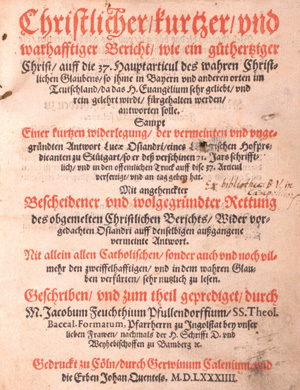 Christlicher/kurtzer/vnd
warhafftiger Bericht/wie ein gůthertziger
Christ/auff die 37. Hauptarticul des wahren Christ-
lichen Glaubens/so jhme in Bayern vnd anderen orten im
Teutschland/da das H. Euangelium sehr geliebt/vnd
rein gelehrt wurdt/fürgehalten werden/
antworten solle.
Sampt
Einer kurtzen widerlegung/der vermeinten vnd vnge-
gründten Antwort Lucæ Osiandri/eines Hofpre-
dicanten zu Stůtgart/so er deß verschinen 71. Jars schrifft-
lich/vnd in den offentlichen Truck auff dise 37. Articul
verfertigt/vnd an tag geben hat.
Ex bibliotheca in
Mit angehenckter
Bescheidener vnd wolgegründter Rettung
des obgemelten Christlichen Berichts/Wider vor-
gedachten Osiandri auff denselbigen außgangene
vermeinte Antwort.
Nit allein allen Catholischen/sonder auch vnd noch vil
mehr den zweiffelhafftigen/vnd in dem wahren Glau-
ben verfürten/sehr nutzlich zu lesen.
Geschriben/vnd zum theil geprediget/durch
M. Jacobum Feuchthium Pfullendorffium/SS. Theol.
Baccal. Formatum, Pfarrherrn zu Ingolstat bey vnser
lieben Frawen/nachmals der H. Schrifft D. vnd
Weyhebischoffen zu Bamberg ꝛc.
Gedruckt zu Cöln/durch Gerwinum Calenium/vnd
die Erben Johan Quentels. M.D.LXXXIIII.